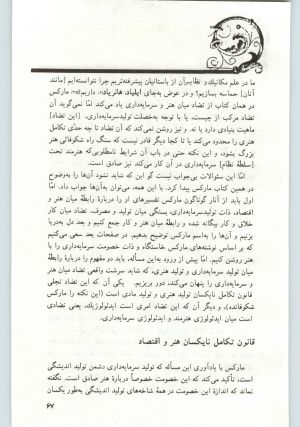 ما در علم مکانیك و نظایرآن از باستانیان پیشرفته‌تریم چرا نتوانسته‌ایم [مانند
آنان] حماسه بسازیم؟ و در عوض به‌جای ایلیاد، هانریاد داریم مارکس
در همان کتاب از تضاد میان هنر و سرمایه‌داری یاد می‌کند اما نمی‌گوید آن
تضاد مرکب از چیست، یا با توجه به‌خصلت تولیدسرمایه‌داری، [این تضاد]
ماهیت بنیادی دارد یا نه. و نیز روشن نمی‌کند که آن تضاد تا چه حدی تکامل
هنری را محدود می‌کند یا تا کجا دیگر قادر نیست که سنگ راه شکوفائی هنر
بزرگ بشود، و این نکته حتی در باب آن شرایط نامطلوبی‌که هنرمند تحت
[سلطه نظام] سرمایه‌داری در آن کار می‌کند نیز صادق است.
اما این سئوالات بی‌جواب نیست گو این که شاید نشود آن‌ها را به‌وضوح
در همین کتاب مارکس پیدا کرد. با این همه، می‌توان به‌آن‌ها جواب داد. اما
اول باید از آثار گوناگون مارکس تفسیرهای او را دربارهٔ رابطهٔ میان هنر و
اقتصاد، ذات تولیدسرمایه‌داری، بستگی میان تولید و مصرف، تضاد میان کار
خلاق و کار بیگانه شده و رابطهٔ میان هنر و کار جمع کنیم و بعد دل به‌دریا
بزنیم و آن‌ها را به‌اسم مارکس توضیح بدهیم. در صفحات بعد سعی می‌کنیم
که بر اساس نوشته‌های مارکس خاستگاه و ذات خصومت سرمایه‌داری را با
هنر روشن کنیم. اما پیش از ورود به‌این مسأله، باید دو مفهوم را دربارهٔ رابطهٔ
میان تولید سرمایه‌داری و تولید هنری، که شاید سرشت واقعی تضاد میان هنر
و سرمایه‌داری را پنهان می‌کند، دور بریزیم. یکی آن که این تضاد تجلی
قانون تکامل نایکسان تولید هنری و تولید مادی است (این نکته را مارکس
شکوفانده)، و دیگر آن که این تضاد امری است ایدئولوژیك، یعنی تضادی
است میان ایدئولوژی هنرمند و ایدئولوژی سرمایه‌داری.
قانون تکامل نایکسان هنر و اقتصاد
مارکس با یادآوری این مسأله که تولید سرمایه‌داری دشمن تولید اندیشگی
است، تأکید می‌کند که این خصومت خصوصاً دربارهٔ هنر صادق است. نگفته
نماند که اندازهٔ این خصومت در همهٔ شاخه‌های تولید اندیشگی به‌طور یکسان
۶۷